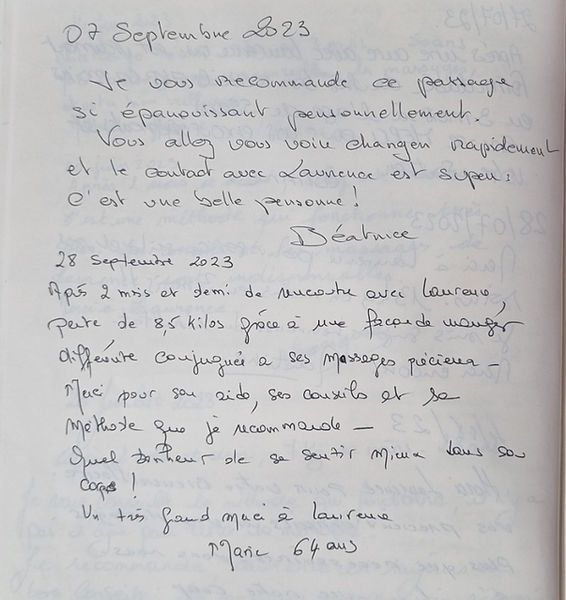 07 Septembre 2023
Je vous recommande ce passage
si épanouissant personnellement.
Vous allez vous voir changer rapidement
et le contact avec Laurence est super :
C'est une belle personne !
Béatrice
28 Septembre 2023
Après 2 mois et demi de rencontre avec Laurence,
perte de 8,5 kilos grâce à une façon de manger
différente conjuguée à ses massages précieux —
Merci pour son aide, ses conseils et sa
méthode que je recommande —
Quel bonheur de se sentir mieux dans son
corps !
Un très grand merci à Laurence
Marie 64 ans